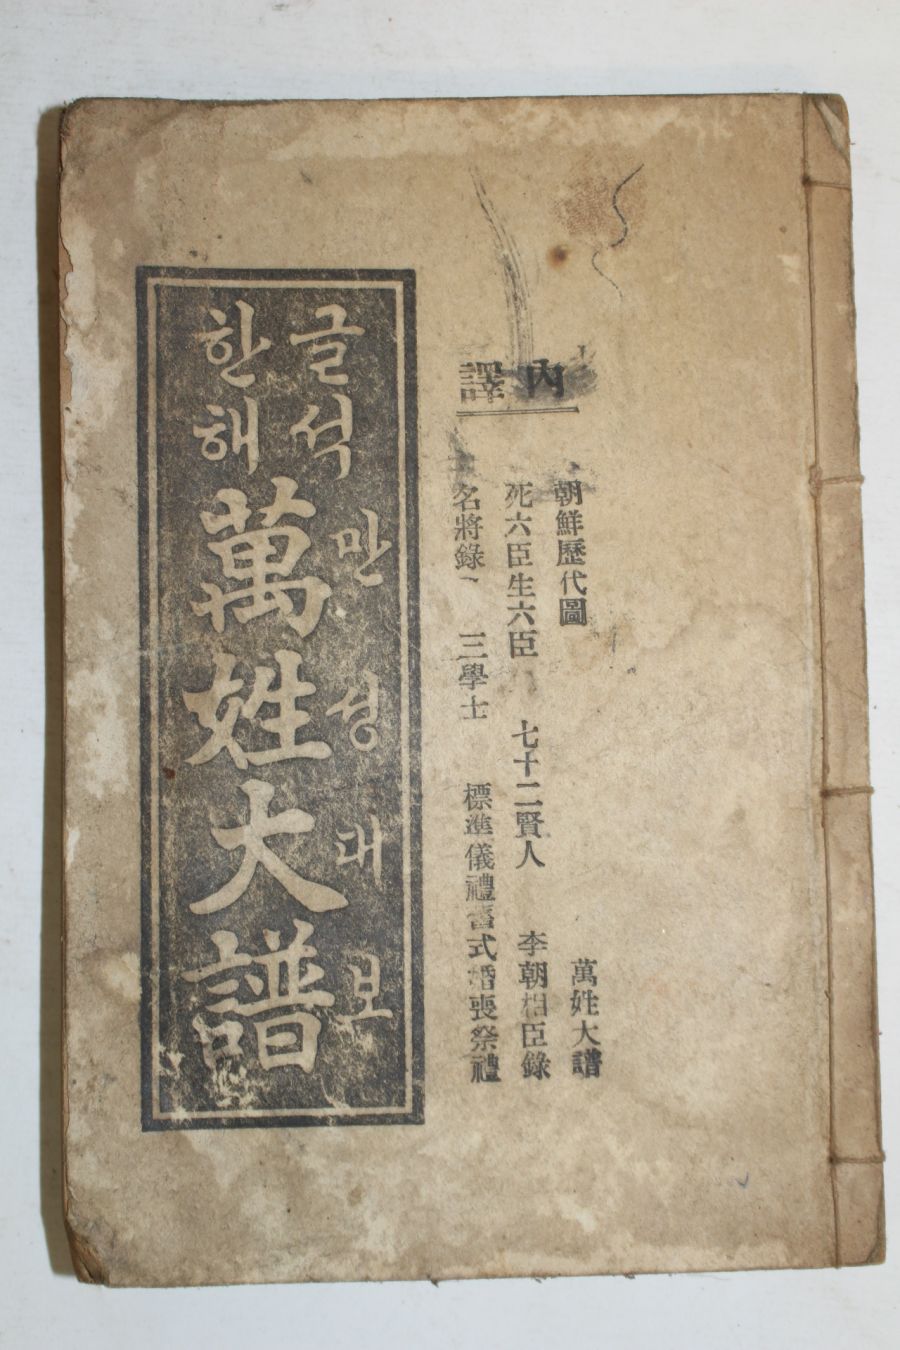 內譯
朝鮮歷代圖 萬姓大譜
死六臣生六臣 七十二賢人 李朝相臣錄
名將錄 三學士 標準儀禮 式婚喪祭禮
한글
해석
萬姓大譜
만성대보